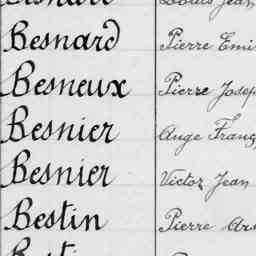 Besnard Pierre Emi
Besneux Pierre Josep
Besnier Ange Franç
Besnier Victor Jean
Bestin Pierre Ars